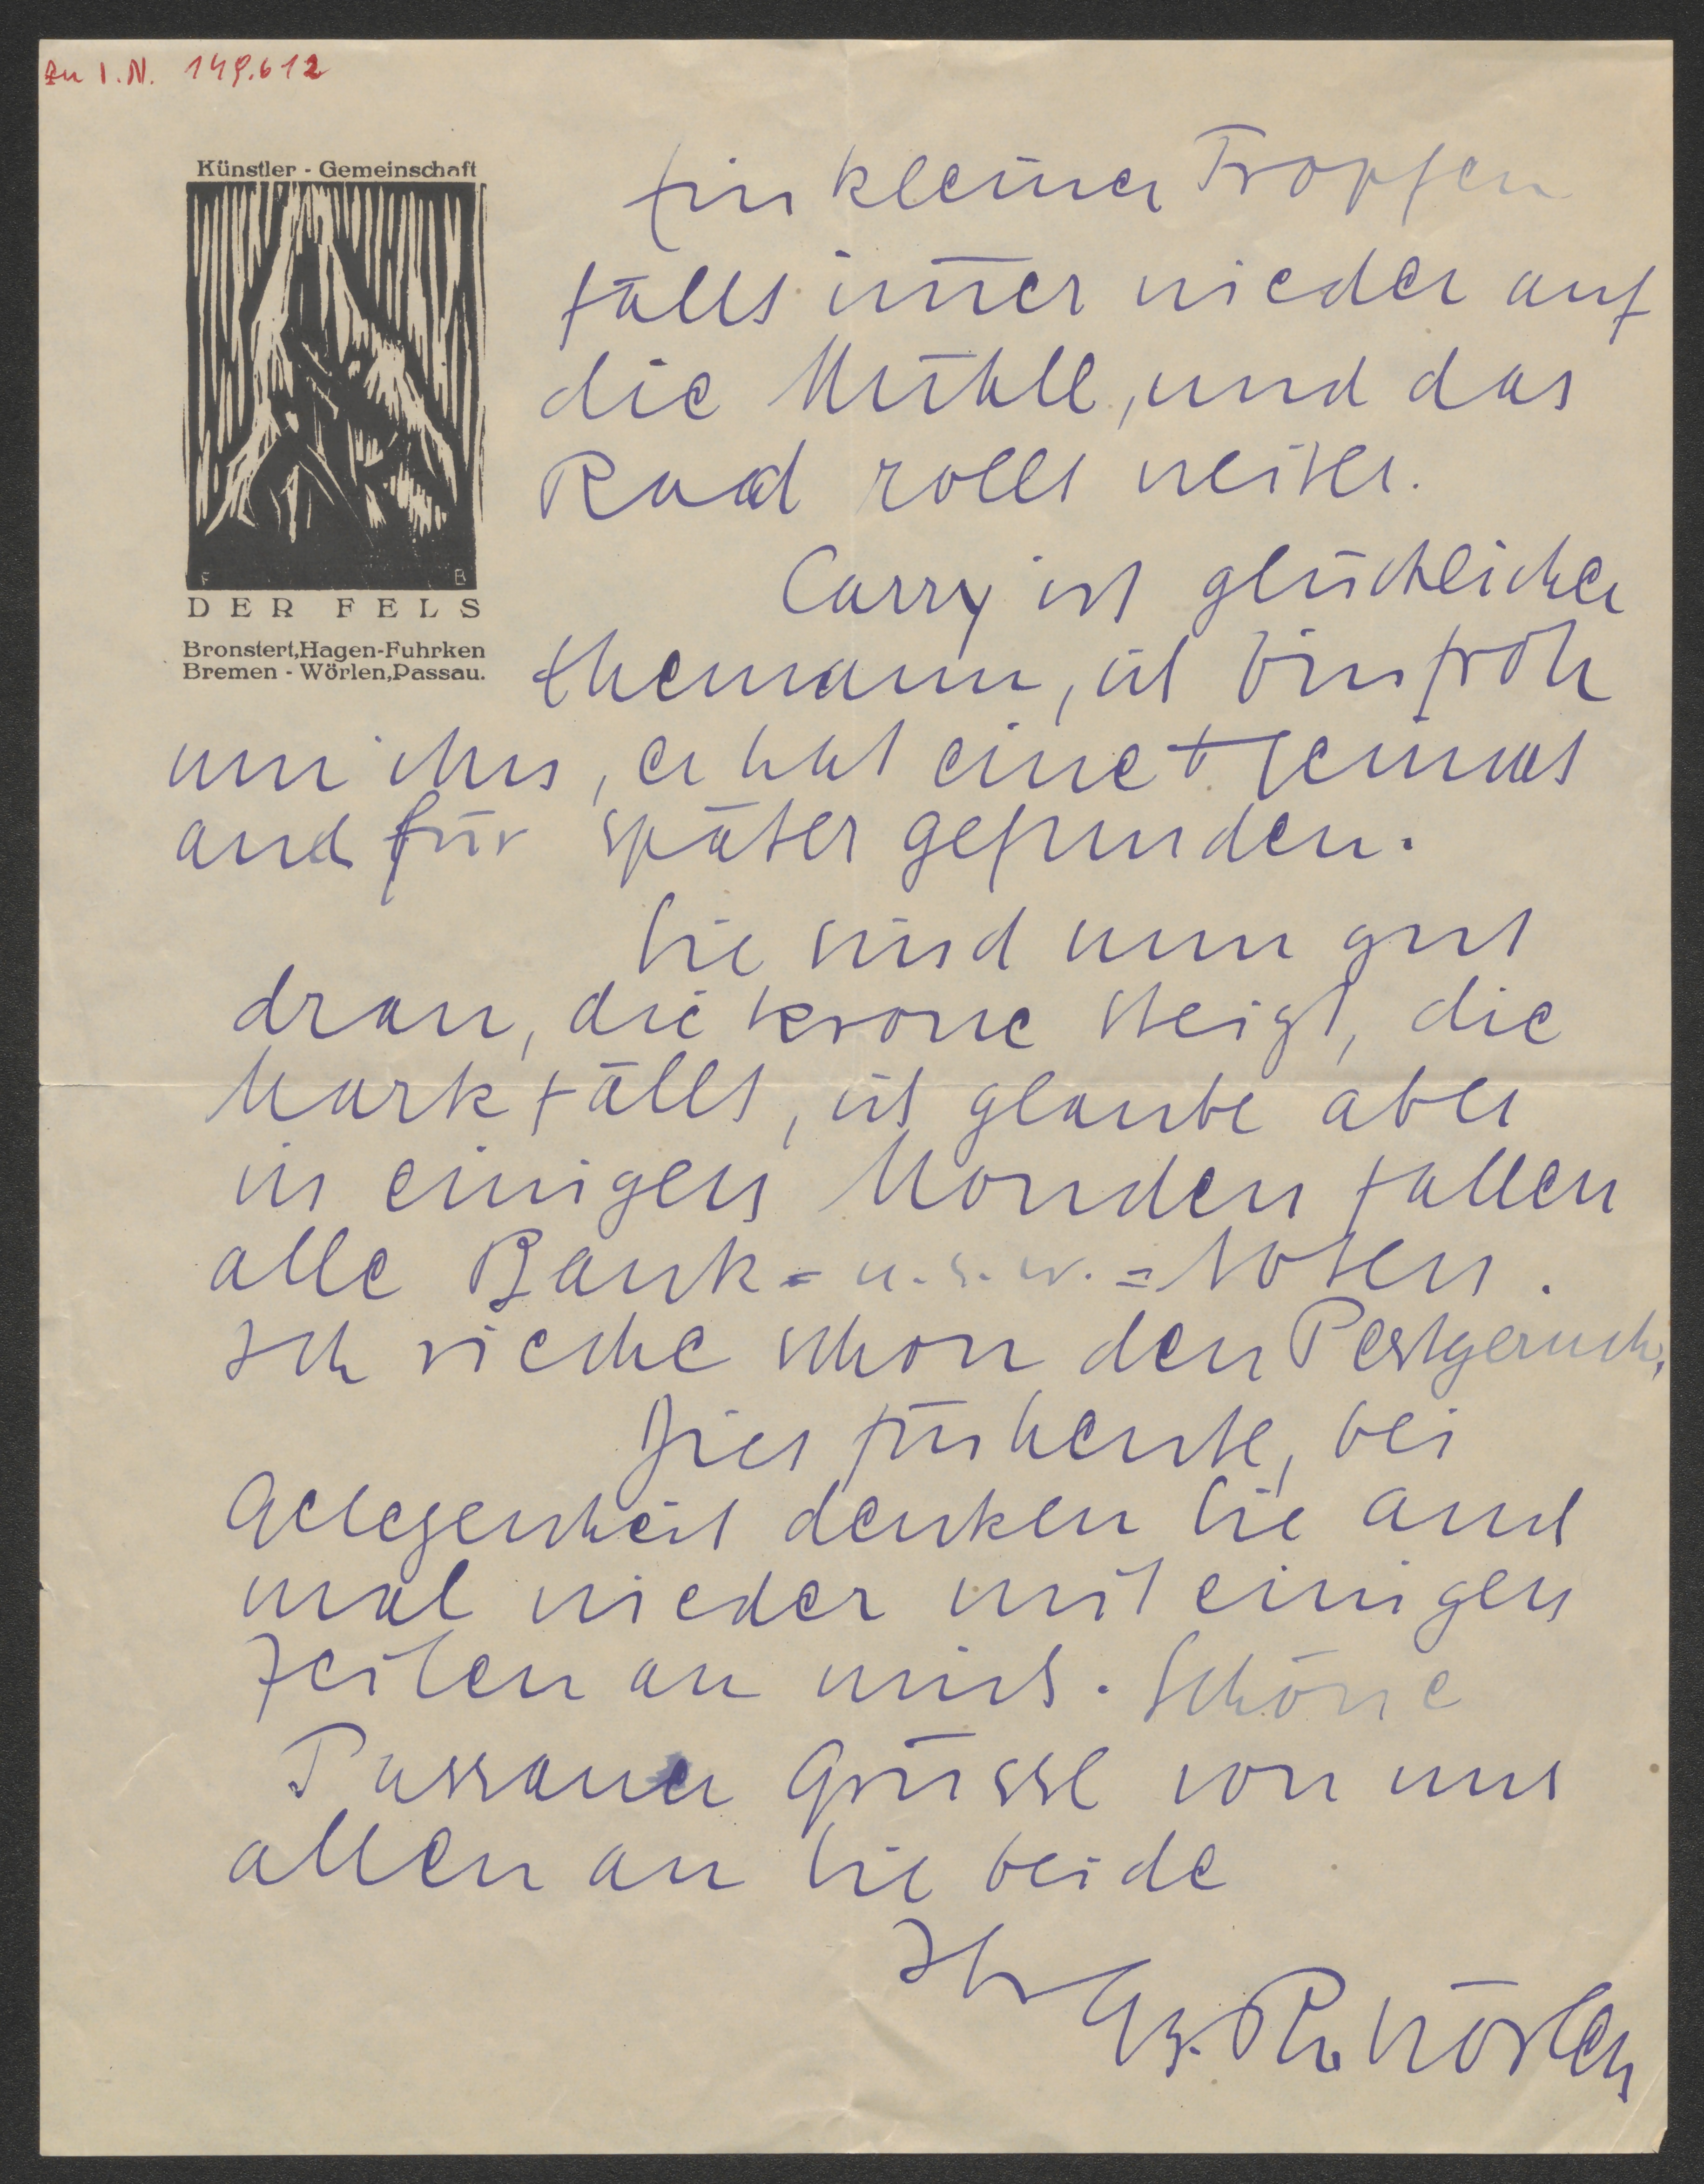 zu I.N. 149.612
Künstler - Gemeinschaft
F B
DER FELS
Bronstert, Hagen-Fuhrken
Bremen - Wörlen, Passau.
Ein kleiner Tropfen
fällt im̄er wieder auf
die Mühle, und das
Rad rollt weiter.
Carry ist glücklicher
Ehemann, ich bin froh
um ihn, er hat eine Heimat
auch für später gefunden.
Sie sind nun gut
dran, die Krone steigt, die
Mark fällt, ich glaube aber
in einigen Monden fallen
alle Bank= u.s.w.=Noten.
Ich rieche schon den Pestgeruch.
Dies für heute, bei
Gelegenheit denken Sie auch
mal wieder mit einigen
Zeilen an mich. Schöne
Passauer Grüsse von uns
allen an Sie beide
Ihr
Gg. Ph. Wörlen